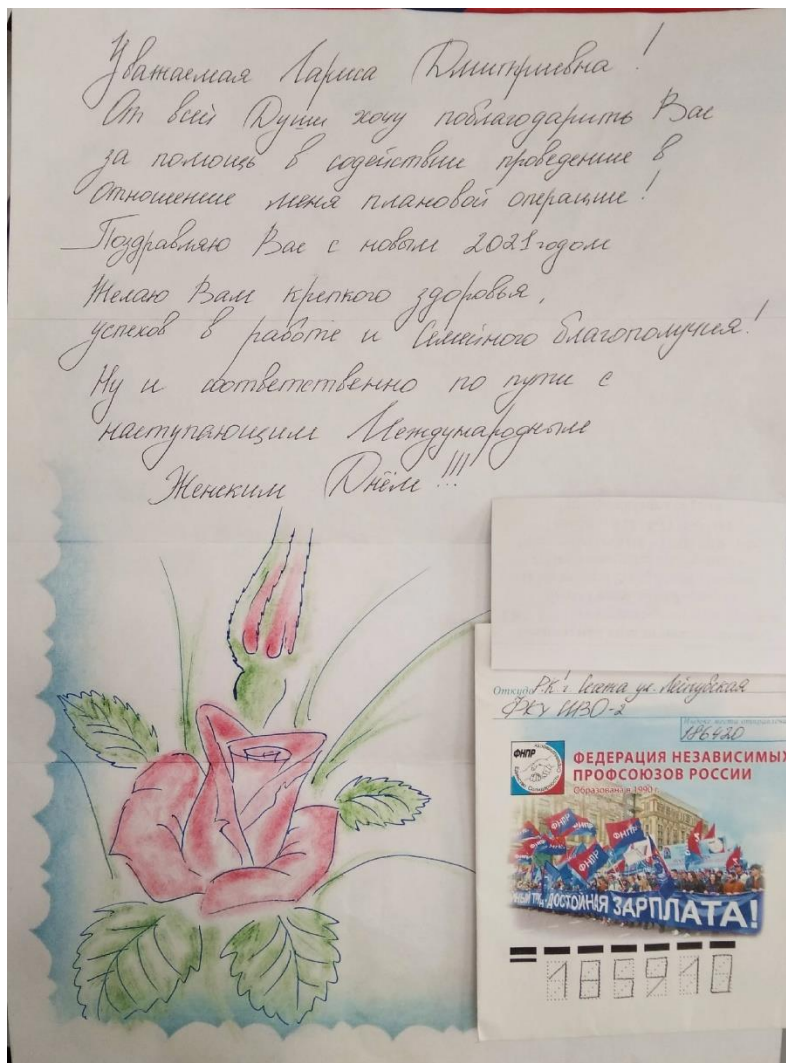 Уважаемая Лариса Дмитриевна!
От всей Души хочу поблагодарить Вас
за помощь в содействие проведение в
отношение меня плановой операции!
Поздравляю Вас с новым 2021 годом
Желаю Вам крепкого здоровья,
успехов в работе и Семейного благополучия!
Ну и соответственно по пути с
наступающим Международным
Женским Днём!!!
Откуда Р.К. г. Сегежа ул. Лейгубская
ФКУ СИЗО-2
Индекс места отправления
186420
ФНПР
ФЕДЕРАЦИЯ НЕЗАВИСИМЫХ
ПРОФСОЮЗОВ РОССИИ
Образована в 1990 г.
ФНПР
ФНПР
ФНПР
ДОСТОЙНАЯ ЗАРПЛАТА!
185910